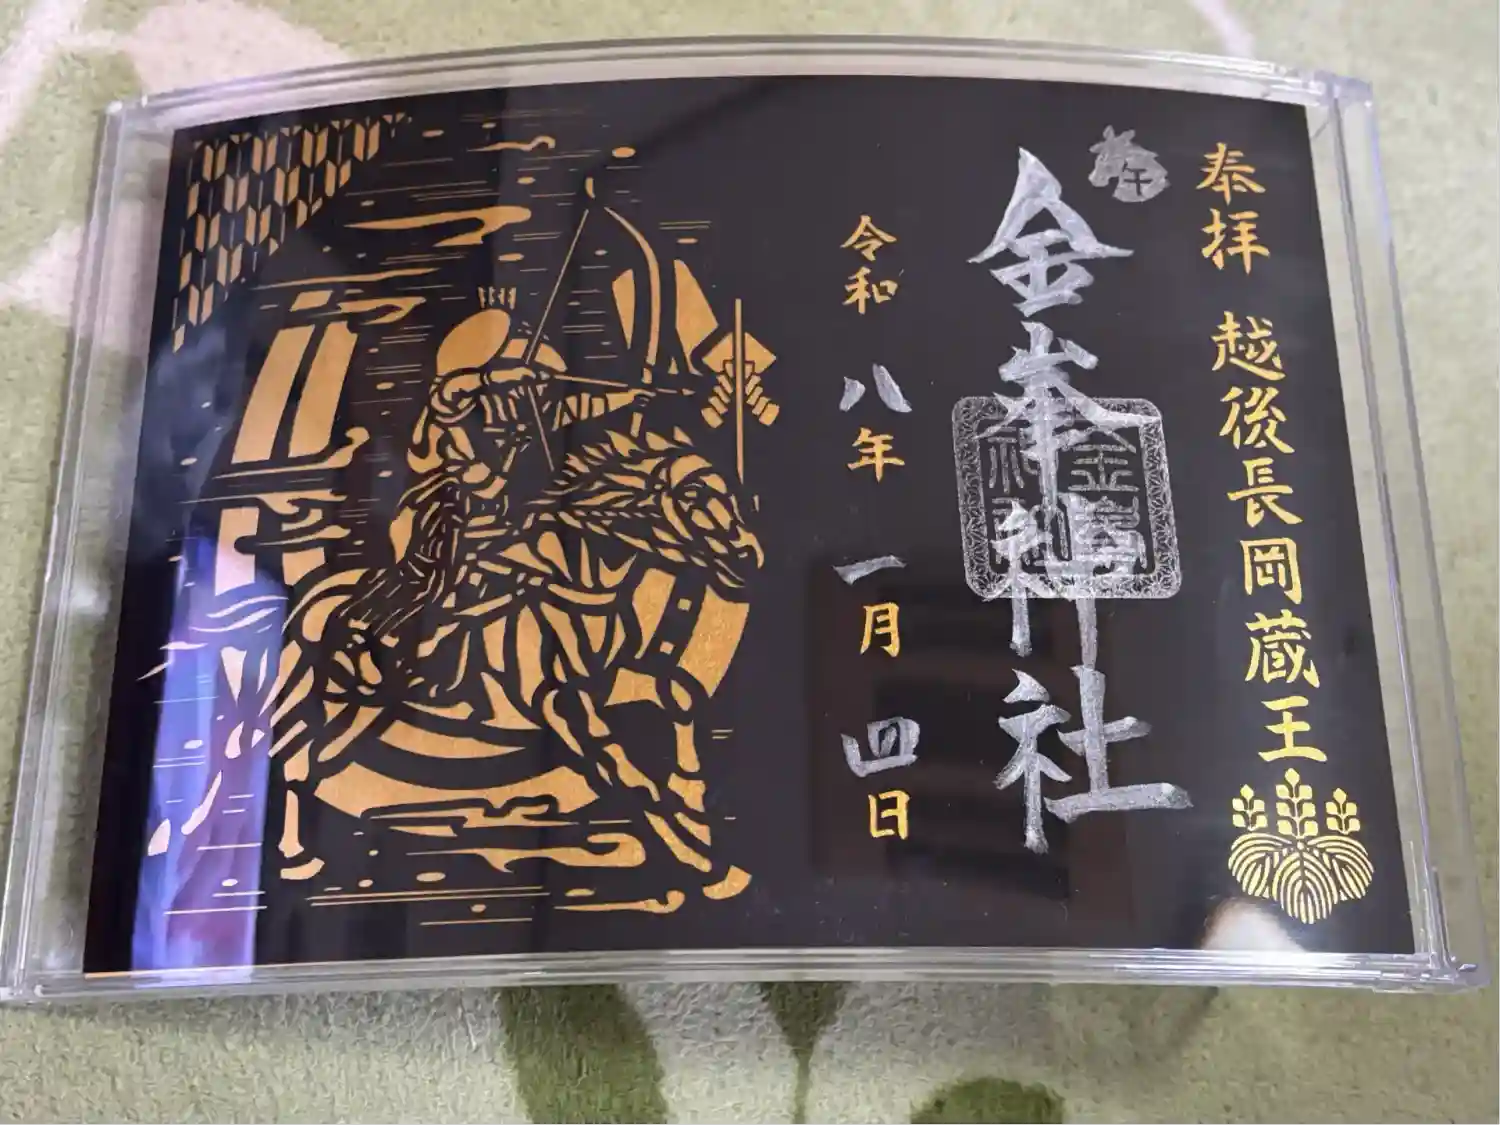 奉拝 越後長岡蔵王
午
金峯神社
令和八年一月四日